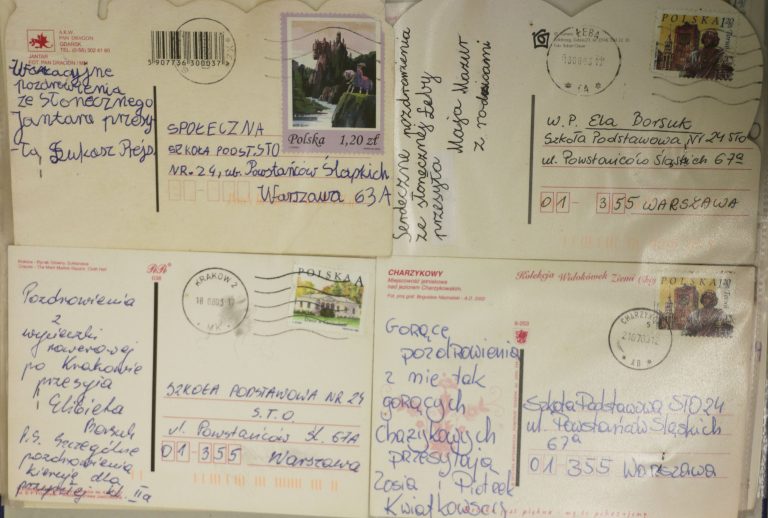 A.K.W.
PAN DRAGON
GDAŃSK
TEL. (0-58) 302 41 60
JANTAR
FOT. PAN DRAGON
5907736300037
Wakacyjne
pozdrowienia
ze słonecznego
Jantaru przesy-
ła, Łukasz
Polska 1,20 zł
SPOŁECZNA
SZKOŁA PODST. STO
NR. 24, ul. Powstańców Śląskich
Warszawa 63A
Serdeczne pozdrowienia
ze słonecznej Łeby
przesyła
Maja Mazur
z rodzicami
ŁEBA
POLSKA 1,20
W. P. Ela Borsuk
Szkoła Podstawowa Nr 24 STO
ul. Powstańców Śląskich 67a
01-355 WARSZAWA
Kraków - Rynek Główny, Sukiennice
Cracow - The Main Market Square, Cloth Hall
KRAKÓW 2
POLSKA A
Pozdrowienia
z
wycieczki
rowerowej
po Krakowie
przesyła
Elżbieta
Borsuk
P.S. Szczególne
pozdrowienia
kieruję dla
przyszłej kl. IIa
SZKOŁA PODSTAWOWA NR 24
S.T.O
ul. Powstańców Śl. 67A
01-355 Warszawa
CHARZYKOWY
Miejscowość
nad jeziorem Charzykowskim.
Kolekcja Widokówek Ziemi
CHARZYKOWY
POLSKA
GORĄCE
POZDROWIENIA
Z NIE TAK
GORĄCYCH
CHARZYKOWYCH
PRZESYŁAJĄ
Zosia i Piotrek
Kwiatkowscy
Szkoła Podstawowa STO 24
ul. Powstańców Śląskich
67a
01-355 WARSZAWA